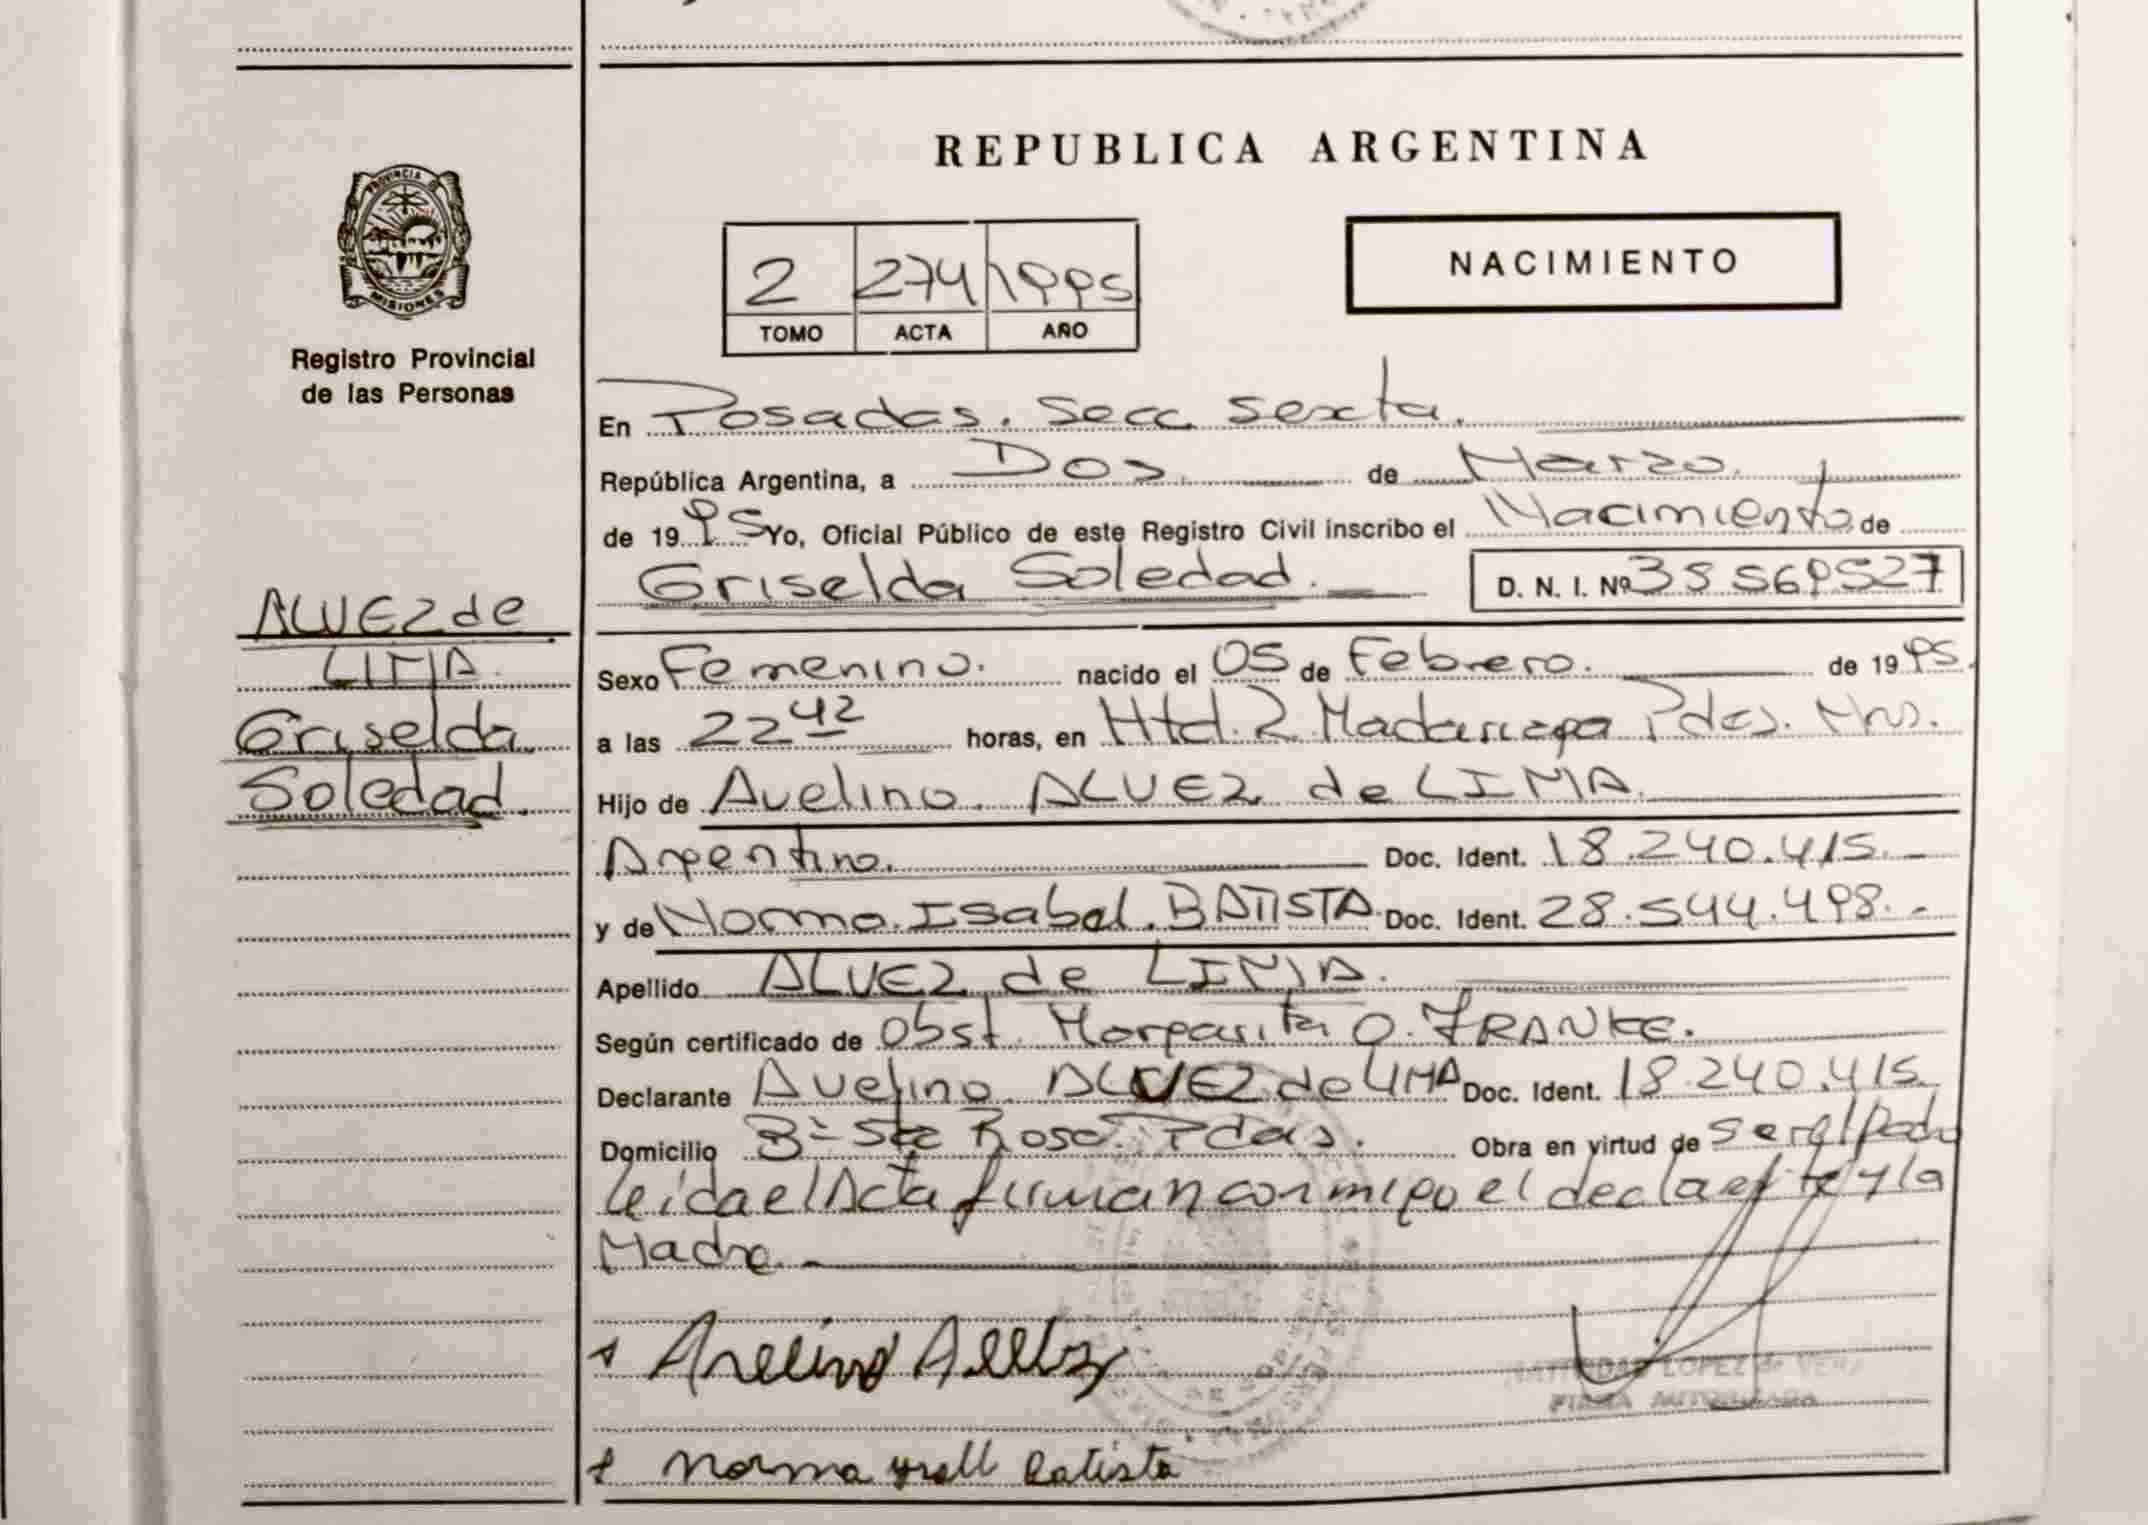 REPUBLICA ARGENTINA
PROVINCIA DE
MISIONES
Registro Provincial
de las Personas
2 274 1995
TOMO ACTA AÑO
NACIMIENTO
En Posadas. Secc. Sexta.
República Argentina, a Dos. de Marzo.
de 1995 Yo, Oficial Público de este Registro Civil inscribo el Nacimiento de
Griselda Soledad. D. N. I. Nº 35569527
ALVEZ de
LIMA.
Griselda
Soledad.
Sexo Femenino. nacido el 05 de Febrero. de 1995.
a las 22 42 horas, en Htal. R. Madariaga Pdas. Mns.
Hijo de Avelino. ALVEZ de LIMA.
Argentino. Doc. Ident. 18.240.415.
y de Norma. Isabel. BATISTA. Doc. Ident. 28.544.498.
Apellido ALVEZ de LIMA.
Según certificado de Obst. Margarita O. FRANKE.
Declarante Avelino. ALVEZ de LIMA Doc. Ident. 18.240.415.
Domicilio Bº Sta Rosa. Pdas. Obra en virtud de ser el Padre
leida el Acta firman conmigo el declarante y la
Madre.
Norma Batista
LOPEZ de VERA
FIRMA AUTORIZADA